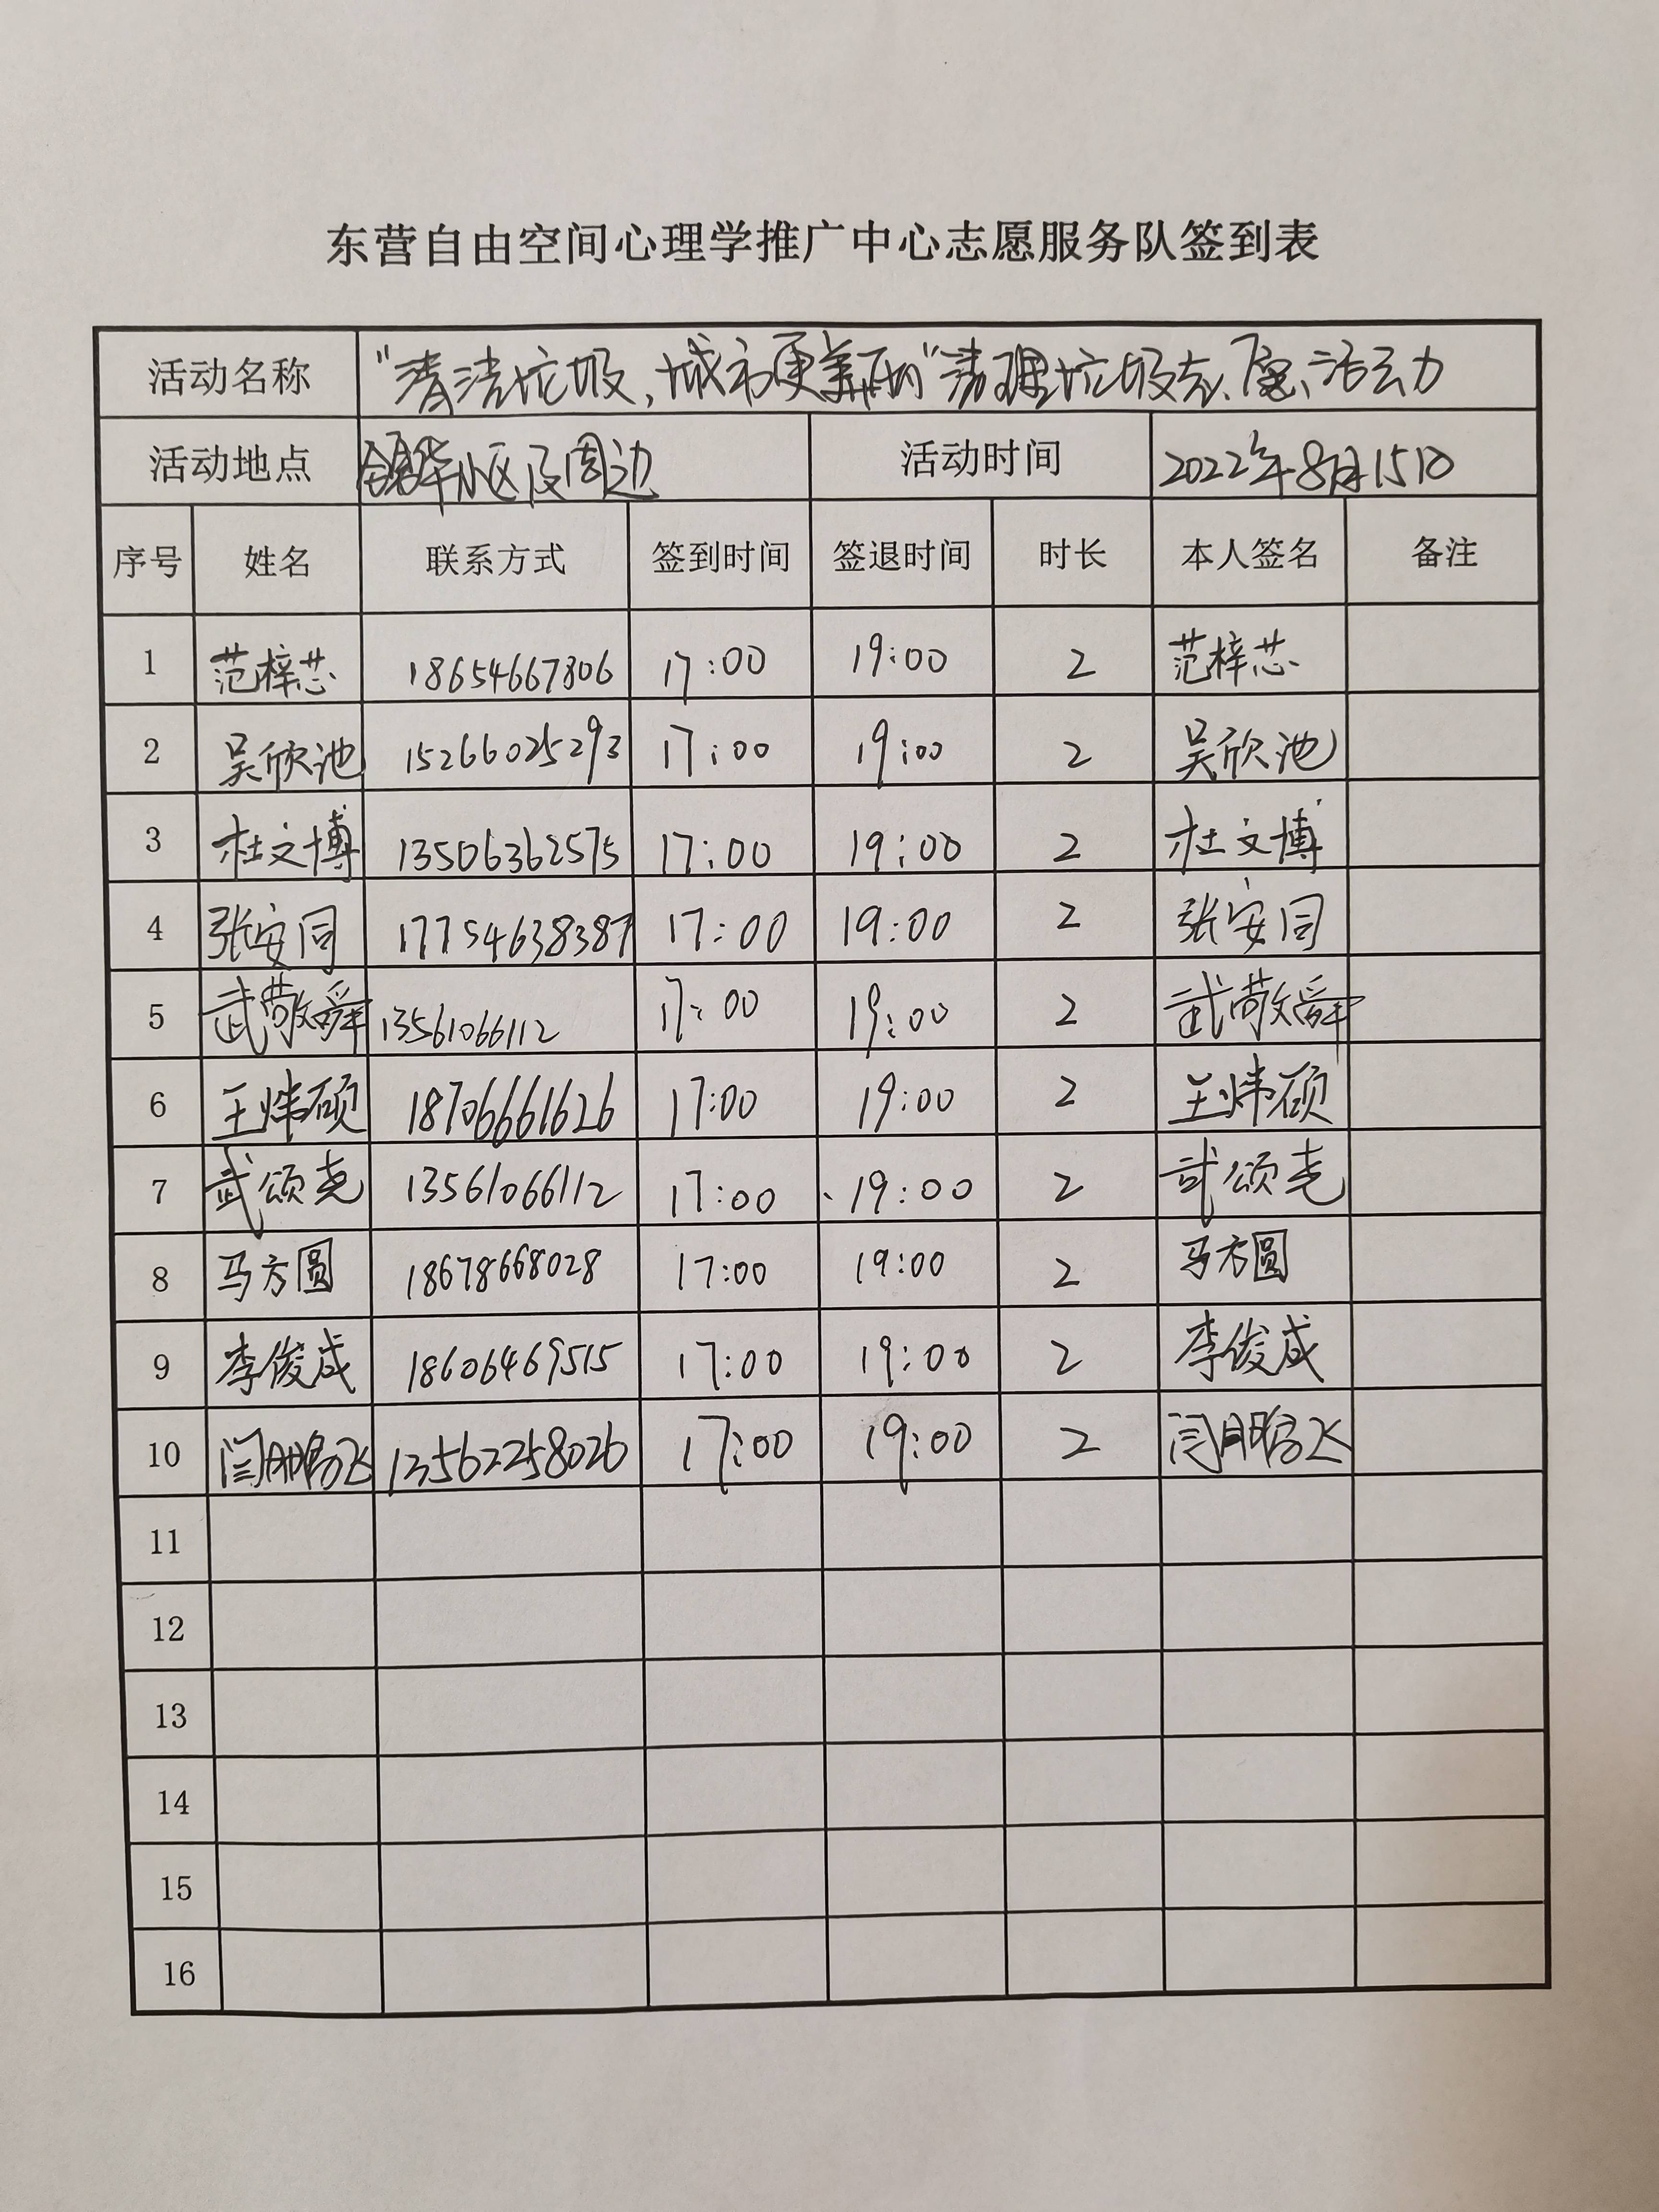 东营自由空间心理学推广中心志愿服务队签到表
活动名称 "清洁垃圾,城市更美丽"清理垃圾志愿活动
活动地点 小区及周边 活动时间 2022年8月15日
序号 姓名 联系方式 签到时间 签退时间 时长 本人签名 备注
1 范梓芯 18654667806 17:00 19:00 2 范梓芯
2 吴欣池 15266025293 17:00 19:00 2 吴欣池
3 杜文博 13506362575 17:00 19:00 2 杜文博
4 张安同 17754638387 17:00 19:00 2 张安同
5 武敬舜 13561066112 17:00 19:00 2 武敬舜
6 王炜硕 18706661626 17:00 19:00 2 王炜硕
7 武颂尧 13561066112 17:00 19:00 2 武颂尧
8 马方圆 18678668028 17:00 19:00 2 马方圆
9 李俊成 18606469515 17:00 19:00 2 李俊成
10 闫鹏飞 13562258026 17:00 19:00 2 闫鹏飞
11
12
13
14
15
16